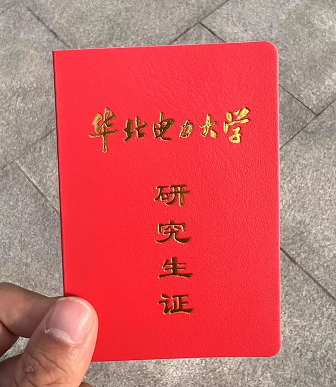 华北电力大学
研究生证